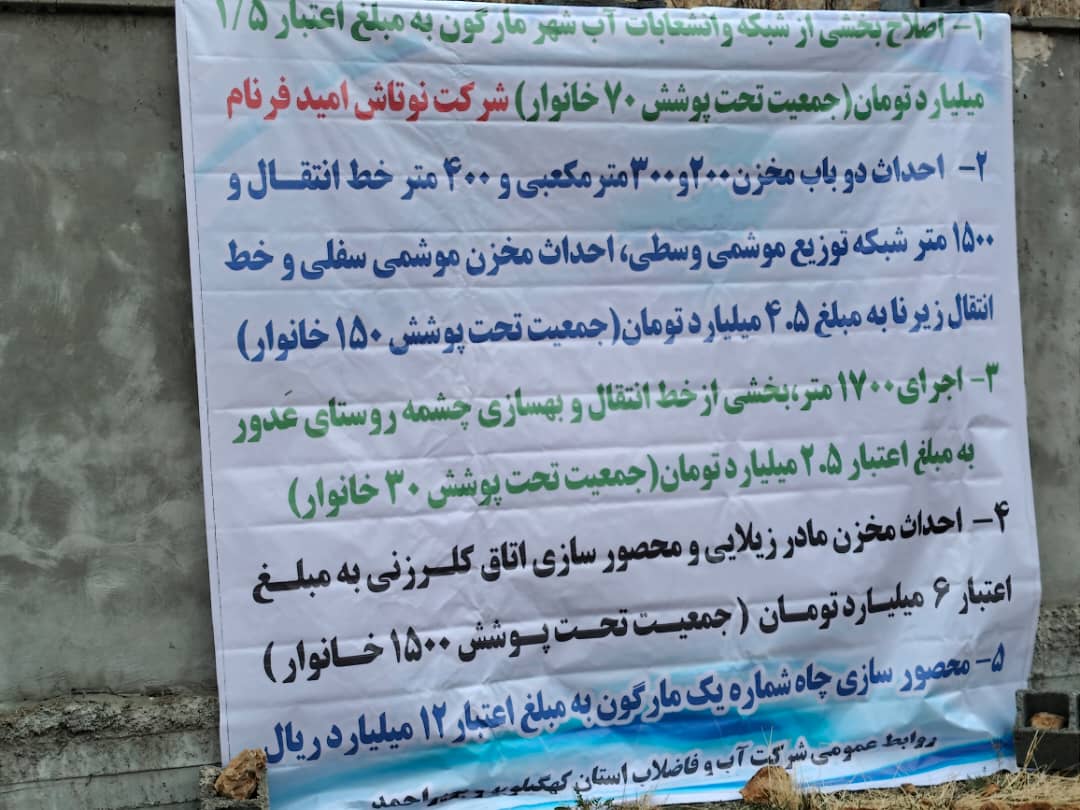 ۱- اصلاح بخشی از شبکه و انشعابات آب شهر مارگون به مبلغ اعتبار ۱/۵
میلیارد تومان(جمعیت تحت پوشش ۷۰ خانوار) شرکت نوتاش امید فرنام
۲- احداث دو باب مخزن ۲۰۰و۳۰۰ مترمکعبی و ۴۰۰ متر خط انتقال و
۱۵۰۰ متر شبکه توزیع موشمی وسطی، احداث مخزن موشمی سفلی و خط
انتقال زیرنا به مبلغ ۴.۵ میلیارد تومان(جمعیت تحت پوشش ۱۵۰ خانوار)
۳- اجرای ۱۷۰۰ متر،بخشی از خط انتقال و بهسازی چشمه روستای عدور
به مبلغ اعتبار ۲.۵ میلیارد تومان(جمعیت تحت پوشش ۳۰ خانوار)
۴- احداث مخزن مادر زیلایی و محصور سازی اتاق کلرزنی به مبلغ
اعتبار ۶ میلیارد تومان ( جمعیت تحت پوشش ۱۵۰۰ خانوار )
۵- محصور سازی چاه شماره یک مارگون به مبلغ اعتبار ۱۲ میلیارد ریال
روابط عمومی شرکت آب و فاضلاب استان کهگیلویه و بویراحمد